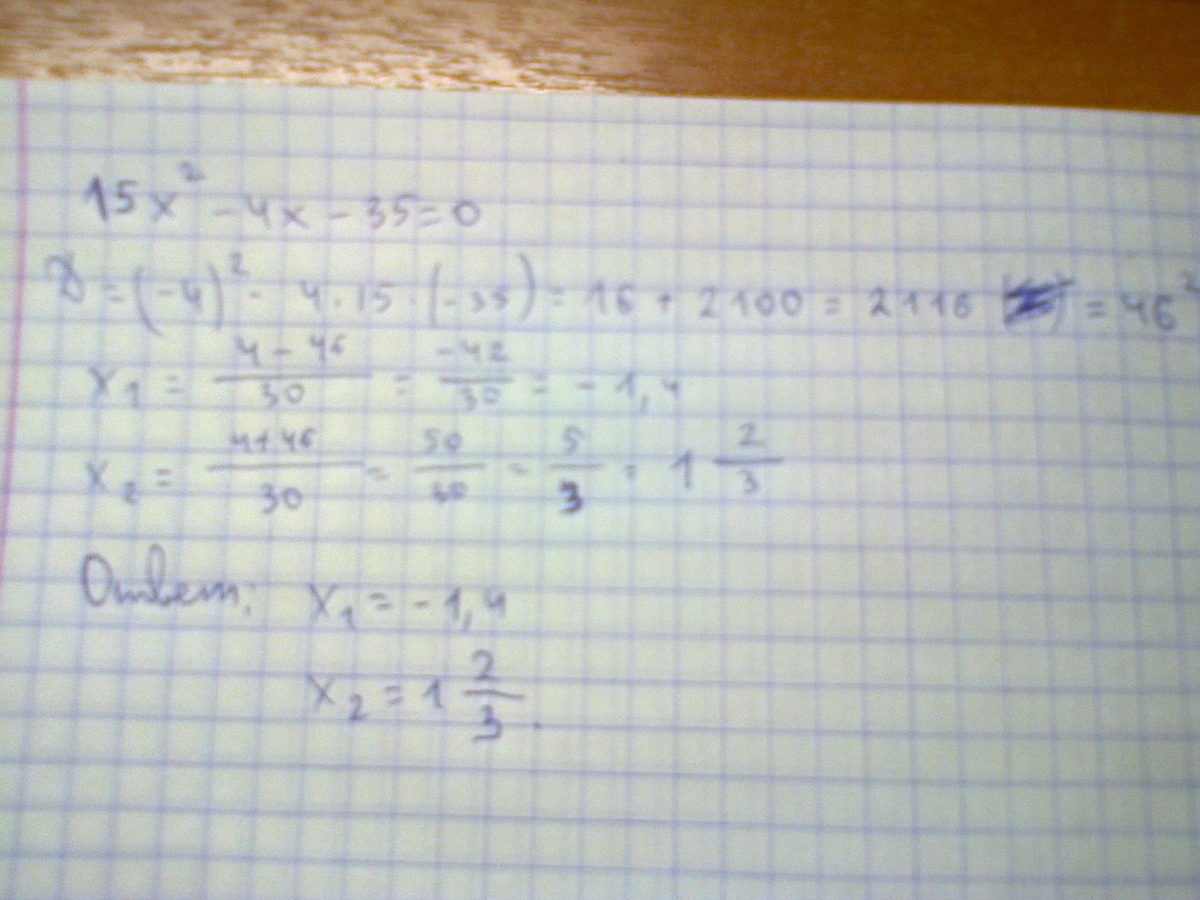 15x² - 4x - 35 = 0
D = (-4)² - 4 · 15 · (-35) = 16 + 2100 = 2116 = 46²
x₁ = (4 - 46)/30 = -42/30 = -1,4
x₂ = (4+46)/30 = 50/30 = 5/3 = 1 2/3
Ответ: x₁ = -1,4
x₂ = 1 2/3.